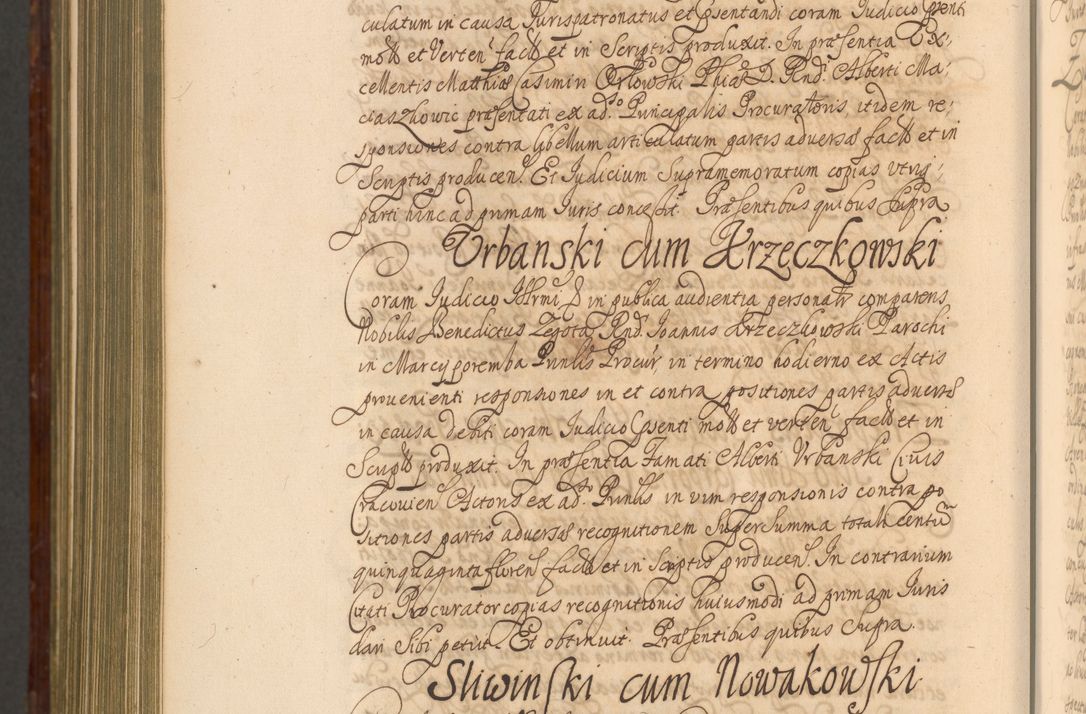 culatum in causa Jurispatronatus et Psentandi coram Judicio Psenti
mott et Verten facta et in Scriptis produxit. In præsentia Ex,
cellentis Matthiæ Casimiri Orlowski Phiæ D. Rndi Alberti Ma,
ciaszkowic præsentati ex adso Principalis Procuratoris, itidem re,
sponsiones contra libellum articulatum partis adversæ factt et in
Scriptis producen. Et Judicium Supramemoratum copias utriq,
parti hinc ad primam Juris concessit. Præsentibus quibus Supra
Urbanski cum Krzeczkowski
Coram Judicio Illrmi D in publica audientia personalr comparens
Nobilis Benedictus Zegota Rndi Joannis Krzeczkowski Parochi
in Marcyporemba Prinlis Procur, in termino hodierno ex Actis
provenienti responsiones in et contra positiones partis adversæ
in causa debiti coram Judicio Psenti mott et verten factt et in
Scriptt produxit. In præsentia Famati Alberti Urbanski Civis
Cracovien Actoris ex adso Prinlis in vim responsionis contra po
sitiones partis adversæ recognitionem Super Summa totali centu
quinquaginta floren facta et in Scriptis producen. In contrarium
Citati Procurator copias recognitionis huiusmodi ad primam Juris
dari Sibi petiit. Et obtinuit. Præsentibus quibus Supra.
Sliwinski cum Nowakowski